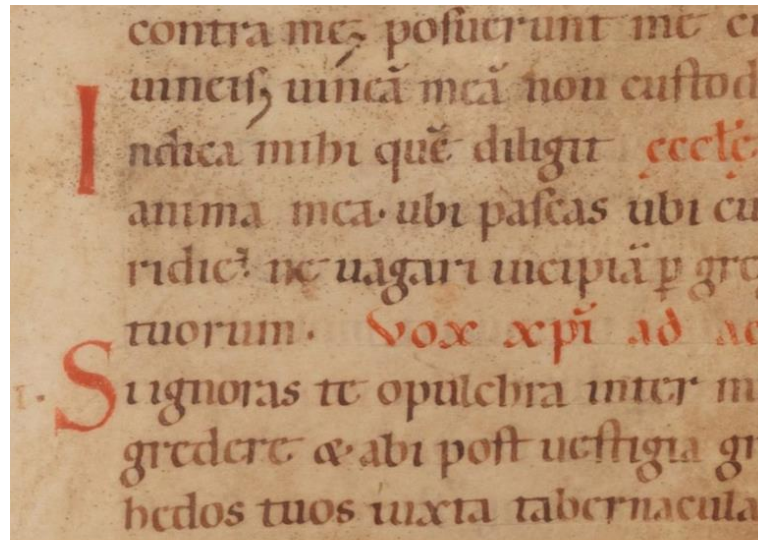 contra meʒ posuerunt me
uineisʒ uineā meā non custod
Indica mihi quē diligit eccƚe
anima mea· ubi pascas ubi cu
ridie? ne uagari incipiā ꝑ gre
tuorum· Vox xp̄i ad
Si ignoras te opulchra inter m
gredere & abi post uestigia gr
hedos tuos iuxta tabernacula